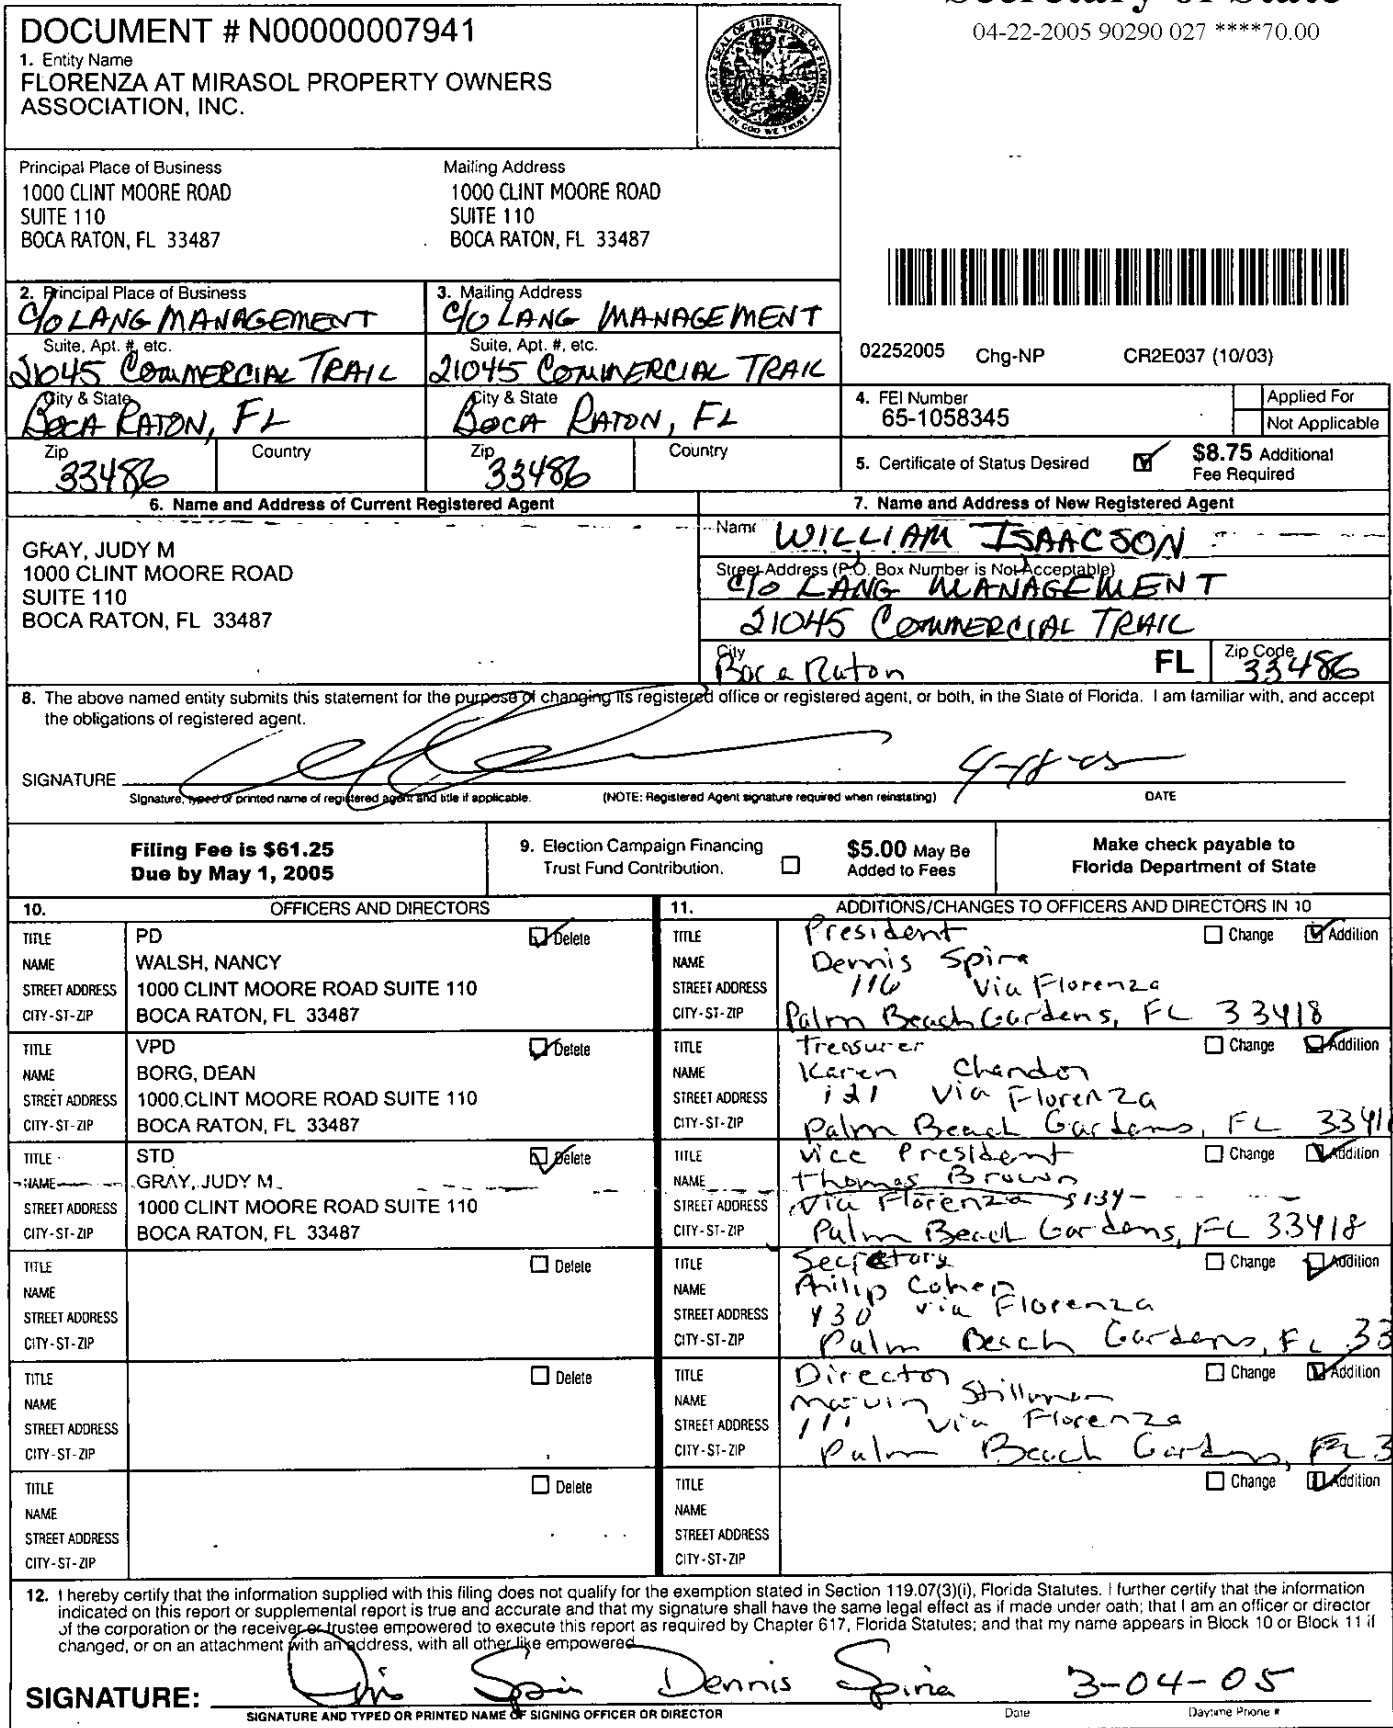 Secretary of State
04-22-2005 90290 027 ****70.00
DOCUMENT # N00000007941
1. Entity Name
FLORENZA AT MIRASOL PROPERTY OWNERS
ASSOCIATION, INC.
GREAT SEAL OF THE STATE OF FLORIDA
IN GOD WE TRUST
Principal Place of Business
1000 CLINT MOORE ROAD
SUITE 110
BOCA RATON, FL 33487
Mailing Address
1000 CLINT MOORE ROAD
SUITE 110
BOCA RATON, FL 33487
2. Principal Place of Business
C/O LANG MANAGEMENT
Suite, Apt. #, etc.
21045 COMMERCIAL TRAIL
City & State
BOCA RATON, FL
Zip
33486
Country
3. Mailing Address
C/O LANG MANAGEMENT
Suite, Apt. #, etc.
21045 COMMERCIAL TRAIL
City & State
BOCA RATON, FL
Zip
33486
Country
02252005 Chg-NP CR2E037 (10/03)
4. FEI Number
65-1058345
Applied For
Not Applicable
5. Certificate of Status Desired
$8.75 Additional
Fee Required
6. Name and Address of Current Registered Agent
GRAY, JUDY M
1000 CLINT MOORE ROAD
SUITE 110
BOCA RATON, FL 33487
7. Name and Address of New Registered Agent
Name
WILLIAM ISAACSON
Street Address (P.O. Box Number is Not Acceptable)
C/O LANG MANAGEMENT
21045 COMMERCIAL TRAIL
City
Boca Raton
FL
Zip Code
33486
8. The above named entity submits this statement for the purpose of changing its registered office or registered agent, or both, in the State of Florida. I am familiar with, and accept
the obligations of registered agent.
SIGNATURE
4-18-05
Signature, typed or printed name of registered agent and title if applicable.
(NOTE: Registered Agent signature required when reinstating)
DATE
Filing Fee is $61.25
Due by May 1, 2005
9. Election Campaign Financing
Trust Fund Contribution.
$5.00 May Be
Added to Fees
Make check payable to
Florida Department of State
10. OFFICERS AND DIRECTORS
TITLE PD Delete
NAME WALSH, NANCY
STREET ADDRESS 1000 CLINT MOORE ROAD SUITE 110
CITY-ST-ZIP BOCA RATON, FL 33487
TITLE VPD Delete
NAME BORG, DEAN
STREET ADDRESS 1000 CLINT MOORE ROAD SUITE 110
CITY-ST-ZIP BOCA RATON, FL 33487
TITLE STD Delete
NAME GRAY, JUDY M
STREET ADDRESS 1000 CLINT MOORE ROAD SUITE 110
CITY-ST-ZIP BOCA RATON, FL 33487
TITLE Delete
NAME
STREET ADDRESS
CITY-ST-ZIP
TITLE Delete
NAME
STREET ADDRESS
CITY-ST-ZIP
TITLE Delete
NAME
STREET ADDRESS
CITY-ST-ZIP
11. ADDITIONS/CHANGES TO OFFICERS AND DIRECTORS IN 10
TITLE President Change Addition
NAME Dennis Spira
STREET ADDRESS 116 Via Florenza
CITY-ST-ZIP Palm Beach Gardens, FL 33418
TITLE Treasurer Change Addition
NAME Karen Chandor
STREET ADDRESS 121 Via Florenza
CITY-ST-ZIP Palm Beach Gardens, FL 3341
TITLE Vice President Change Addition
NAME Thomas Brown
STREET ADDRESS Via Florenza
CITY-ST-ZIP Palm Beach Gardens, FL 33418
TITLE Secretary Change Addition
NAME Philip Cohen
STREET ADDRESS 130 via Florenza
CITY-ST-ZIP Palm Beach Gardens, FL 33
TITLE Director Change Addition
NAME Marvin Stillman
STREET ADDRESS 111 Via Florenza
CITY-ST-ZIP Palm Beach Gardens, FL 3
TITLE Change Addition
NAME
STREET ADDRESS
CITY-ST-ZIP
12. I hereby certify that the information supplied with this filing does not qualify for the exemption stated in Section 119.07(3)(i), Florida Statutes. I further certify that the information
indicated on this report or supplemental report is true and accurate and that my signature shall have the same legal effect as if made under oath; that I am an officer or director
of the corporation or the receiver or trustee empowered to execute this report as required by Chapter 617, Florida Statutes; and that my name appears in Block 10 or Block 11 if
changed, or on an attachment with an address, with all other like empowered.
SIGNATURE: Dennis Spira 3-04-05
SIGNATURE AND TYPED OR PRINTED NAME OF SIGNING OFFICER OR DIRECTOR
Date
Daytime Phone #